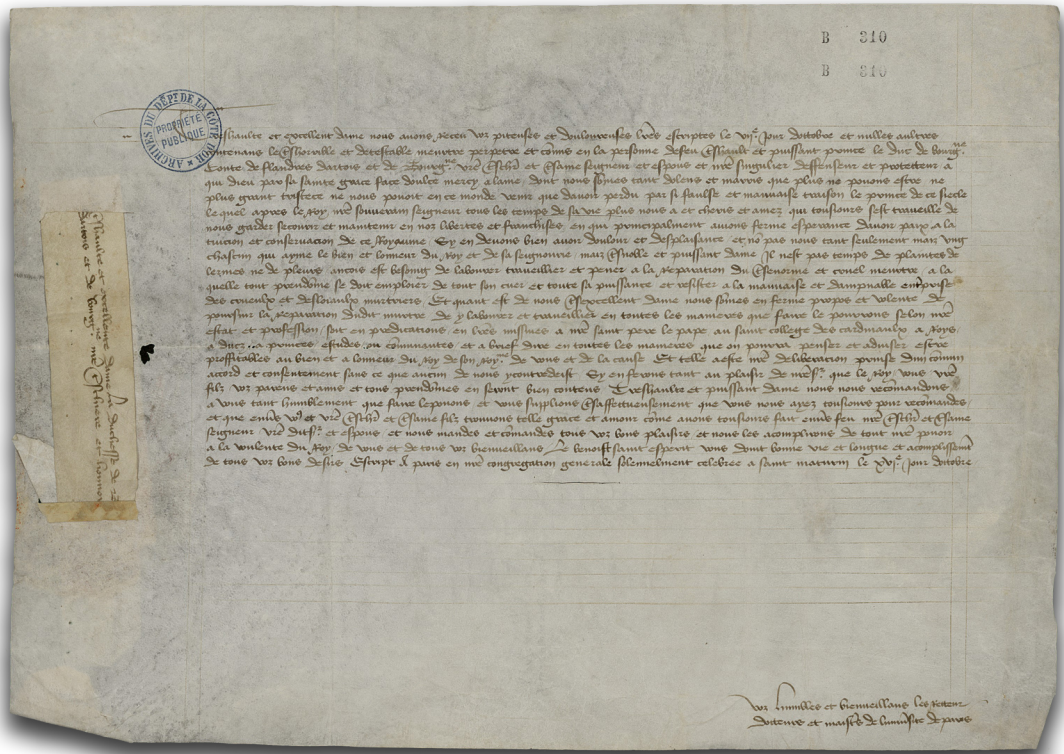 B 310
B 310
ARCHIVES DU DÉPT. DE LA CÔTE D'OR
PROPRIÉTÉ PUBLIQUE
Treshaulte et excellent dame nous avons receu voz piteuses et douloureuses lres escriptes le VIIe. jour doctobre et nulles aultres
contenans le treshorrible et detestable meurtre perpetre et comis en la personne defeu treshault et puissant prince le duc de bourgne
Conte de flandres dartois et de bourgne. vre treschr et tresame seigneur et espous et nre singulier deffenseur et protecteur a
qui dieu par sa sainte grace face doulce mercy a lame, dont nous somes tant dolens et marris que plus ne pouons estre ne
plus grant tristece ne nous pouoit en ce monde venir que davoir perdu par si faulse et mauvaise traison le prince de ce siecle
lequel apres le Roy nre souverain seigneur tous les temps de sa vie plus nous a et cheris et amez qui tousiours sest travaille de
nous garder secourir et maintenir en noz libertes et franchises, en qui principalment avions ferme esperance davoir paix a la
tuicion et conservacion de ce Royaume. Sy en devons bien avoir douleur et desplaisance et no pas nous tant seulement mais ung
chascun qui ayme le bien et lonneur du Roy et de sa seigneurie, mais tresnoble et puissant dame Il nest pas temps de plaintes de
lermes ne de pleurs, ancois est besoing de labourer travaillier et pener a la reparation du tresenorme et cruel meurtre, a la
quelle tout preudome se doit emploier de tout son cuer et toute sa puissance et resister a la mauvaise et dampnable entreprise
des crueulx et desloiaulx murtriers, Et quant est de nous tresexcellent dame nous somes en ferme propos et volente de
poursuir la reparation dudit murtre de y labourer et travaillier en toutes les manieres que faire le pourrons selon nre
estat et profession, soit en predicacions, en lres missives a nre saint pere le pape au saint college des cardinaulx a Roys,
a ducz, a princes, estudes, ou comunautes, et a brief dire en toutes les manieres que on pourra penser et adviser estre
proffitables au bien et a lonneur du Roy de son Roy.me de vous et de la cause Et telle a este nre deliberation prinse dun commun
accord et consentement sans ce que aucun de nous y contredeist Sy en ferons tant au plaisir de nres. que le Roy, vous vre
filz voz parens et amis et tous preudomes en seront bien contens Treshaulte et puissant dame nous nous recomandons
a vous tant humblement que faire le pouons et vous supplions tresaffectueusement que vous nous ayez tousiours pour recomandes,
et que envs vos et vre treschr et tresame filz trouvions telle grace et amour come avons tousiours fait envs feu nre treschr et tresame
seigneur vre dits. et espous et nous mandes et comandes tous voz bons plaisirs et nous les acomplirons de tout nre pouoir
a la voulente du Roy, de vous et de tous voz bienveillans Le benoist saint esperit vous doint bonne vie et longue et acomplissemt
de tous voz bons desirs. Escript A paris en nre congregation generale solennelment celebree a saint maturin le XVIe. jour doctobre
voz humbles et bienveillans les Recteur
docteurs et maistrs de luniversite de paris
Treshaulte et excellente dame la duchesse de
dartois et de bourgne nre treschiere et honnoree